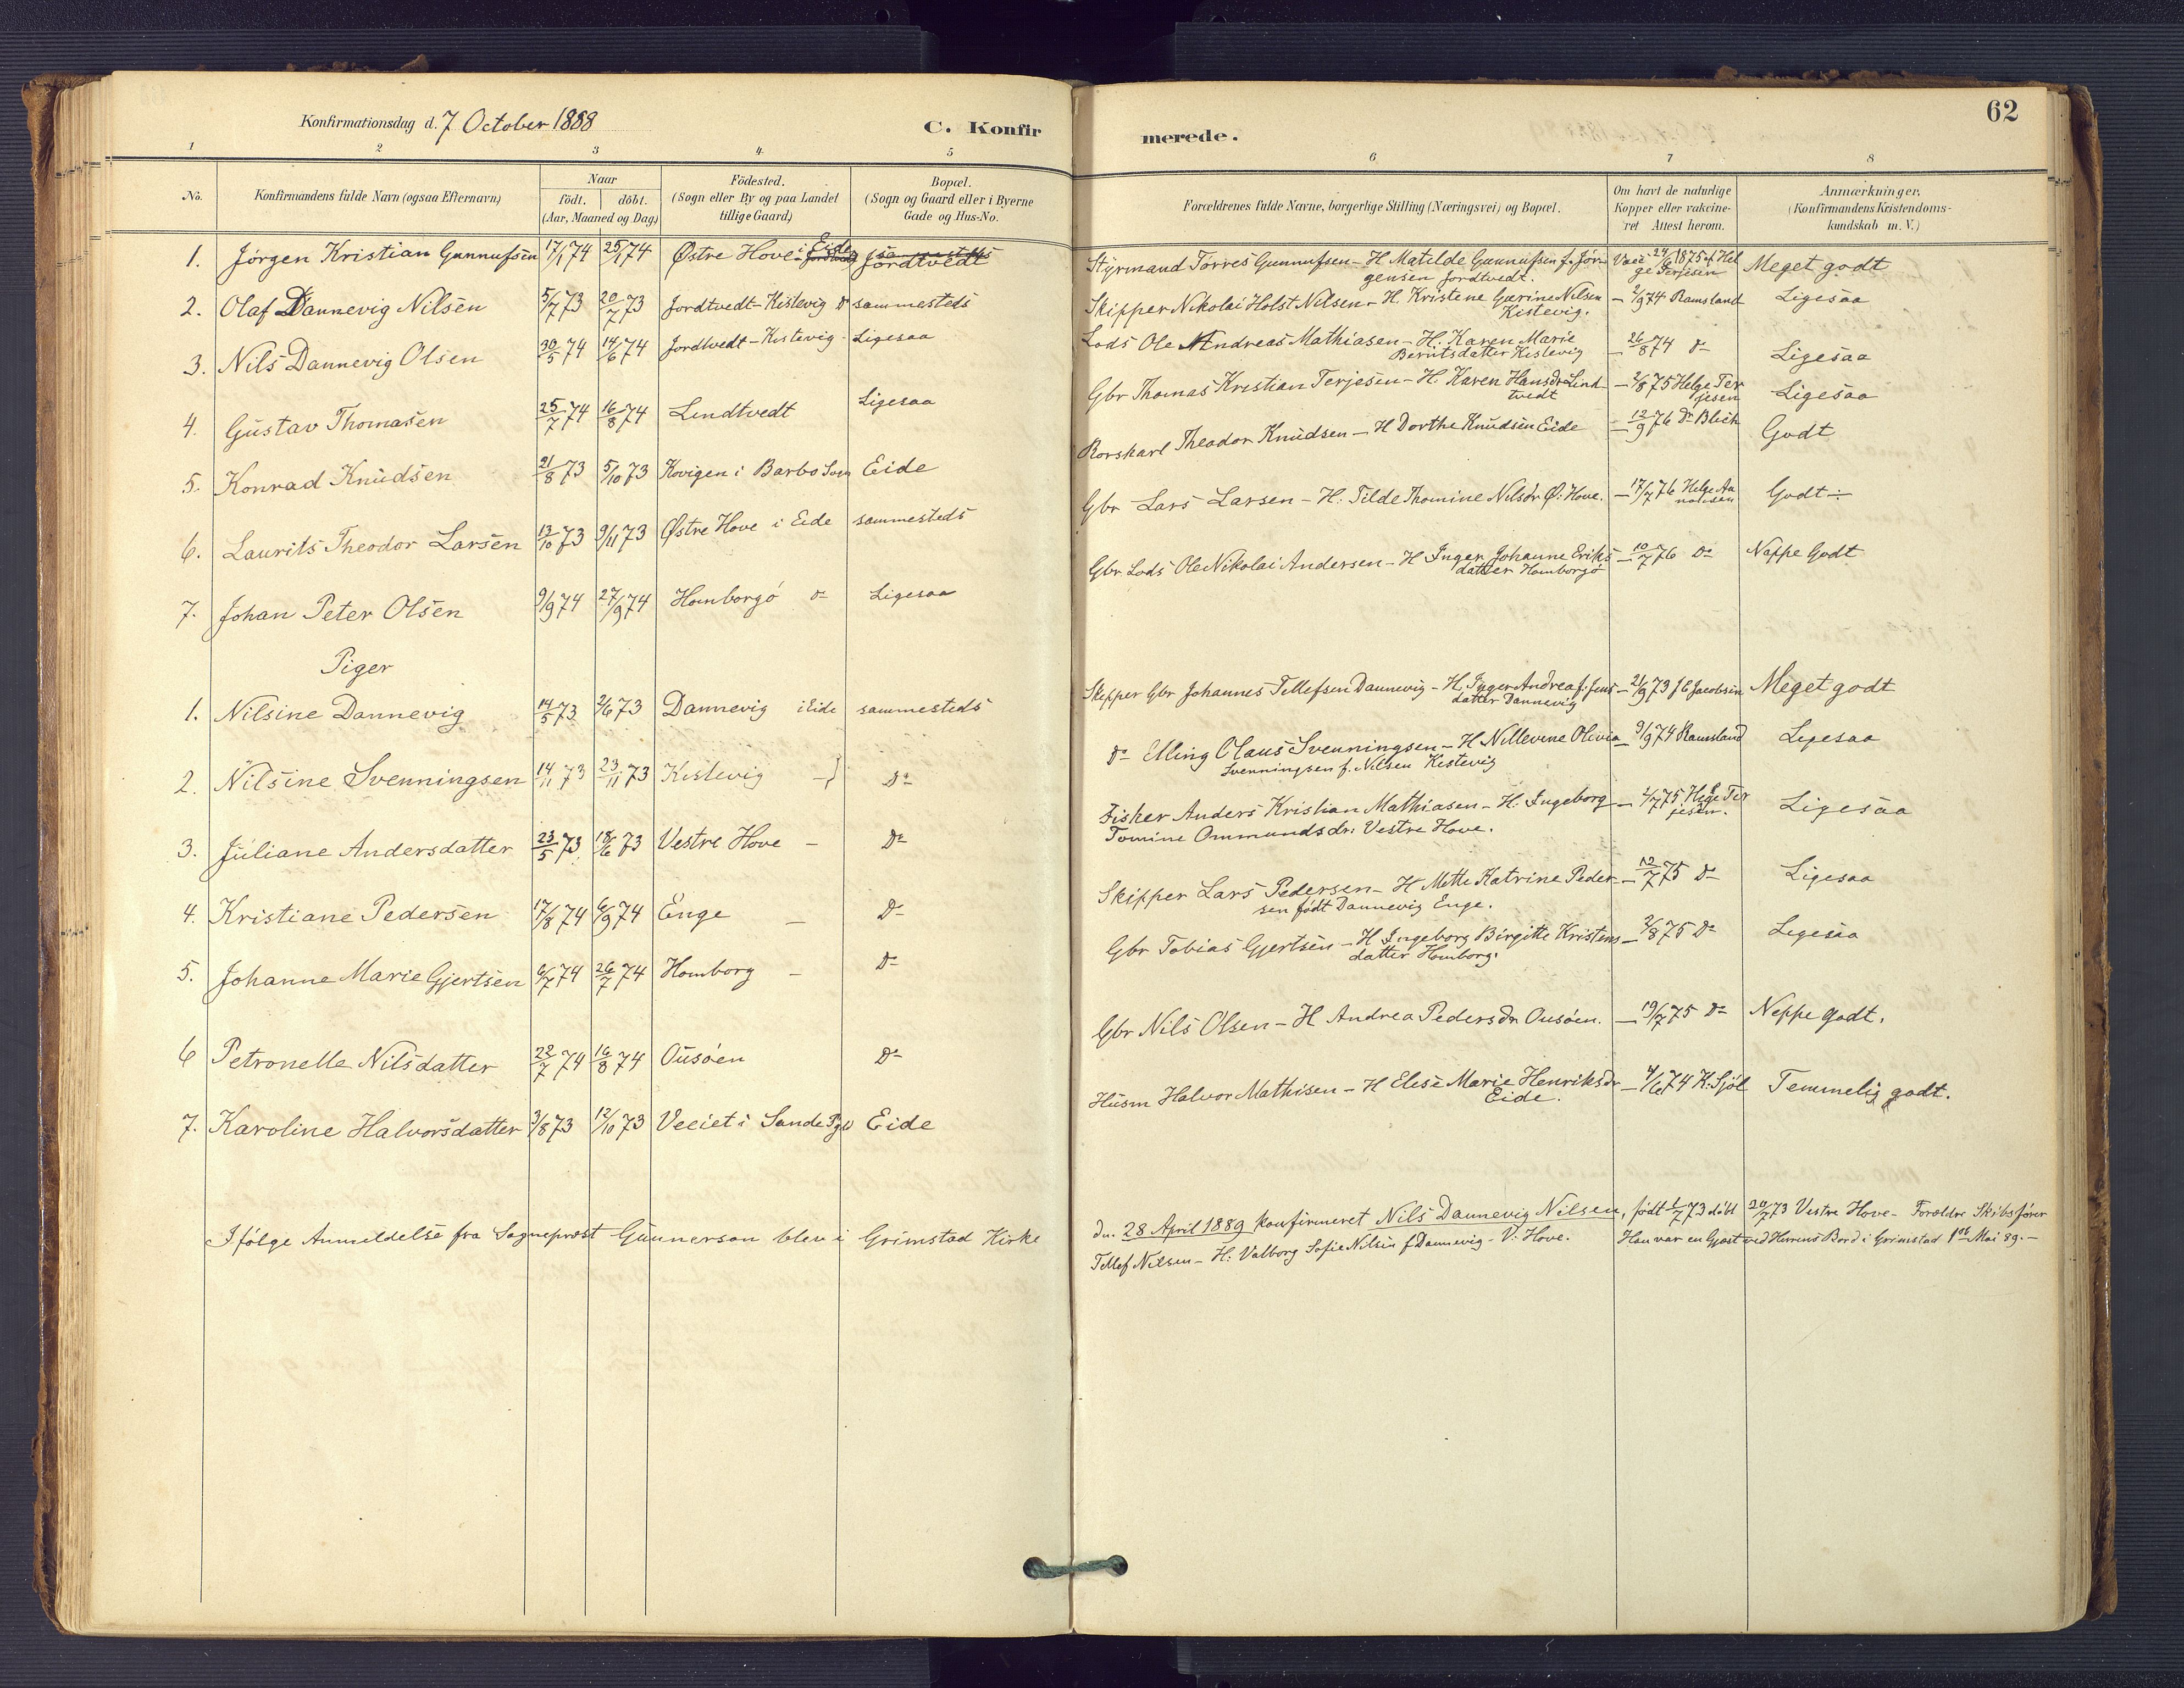 Konfirmationsdag d. 7 October 1888
C. Konfirmerede.
62
1 2 3 4 5 6 7 8
No.
Konfirmandens fulde Navn (ogsaa Efternavn)
Naar
födt. döbt.
(Aar, Maaned og Dag)
Födested.
(Sogn eller By og paa Landet
tillige Gaard)
Bopæl.
(Sogn og Gaard eller i Byerne
Gade og Hus-No.
Forældrenes fulde Navne, borgerlige Stilling (Næringsvei) og Bopæl.
Om havt de naturlige
Kopper eller vakcine-
ret Attest herom.
Anmærkninger.
(Konfirmandens Kristendoms-
kundskab m. V.)
1. Jörgen Kristian Gunnufsen 17/1 74 25/1 74 Østre Hove i Eide Jordtvedt
Styrmand Törres Gunnufsen - H Matilde Gunnufsen f. Jörgensen Jordtvedt. Vacc 24/6 1875 af Helge Terjesen Meget godt
2. Olaf Dannevig Nilsen 5/7 73 20/7 73 Jordtvedt - Kistevig Do sammesteds
Skipper Nikolai Holst Nilsen - H. Kristene Gurine Nilsen Kistevig. - 2/9 74 Ramsland Ligesaa
3. Nils Dannevig Olsen 30/5 74 14/6 74 Jordtvedt - Kistevig - Ligesaa
Lods Ole Andreas Mathiasen - H. Karen Marie Berntsdatter Kistevig - 26/8 74 Do Ligesaa
4. Gustav Thomasen 25/7 74 16/8 74 Lindtvedt Ligesaa
Gbr Thomas Kristian Terjesen - H. Karen Hansdr Lindtvedt - 2/8 75 Helge Terjesen Ligesaa
5. Konrad Knudsen 21/8 73 5/10 73 Kovigen i Barbo Sogn Eide
Rorskarl Theodor Knudsen - H Dorthe Knudsen Eide - 12/9 76 Dr Blich Godt
6. Laurits Theodor Larsen 13/10 73 9/11 73 Østre Hove i Eide sammesteds
Gbr Lars Larsen - H. Tilde Thomine Nilsdr Ø. Hove. - 17/7 76 Helge Godt
7. Johan Peter Olsen 9/9 74 27/9 74 Homborgö Do Ligesaa
Gbr. Lods Ole Nikolai Andersen - H Inger Johanne Eriksdatter Homborgö - 10/7 76 Do Neppe Godt
Piger
1. Nilsine Dannevig 14/5 73 2/6 73 Dannevig i Eide sammesteds
Skipper Gbr Johannes Tellefsen Dannevig - H. Inger Andrea f. Jensdatter Dannevig - 21/9 73 J C Jacobsen Meget godt
2. Nilsine Svenningsen 14/11 73 23/11 73 Kistevig - Do
Do Elling Claus Svenningsen - H Nillevine Olivia Svenningsen f. Nilsen Kistevig - 9/9 74 Ramsland Ligesaa
3. Juliane Andersdatter 23/5 73 18/6 73 Vestre Hove - Do
Fisker Anders Kristian Mathiasen - H. Ingeborg Tomine Ommundsdr. Vestre Hove. - 2/7 75 Helge Terjesen. Ligesaa
4. Kristiane Pedersen 17/8 74 6/9 74 Enge - Do
Skipper Lars Pedersen - H Mette Katrine Pedersen födt Dannevig Enge. - 12/7 75 Do Ligesaa
5. Johanne Marie Gjertsen 6/7 74 26/7 74 Homborg - Do
Gbr Tobias Gjertsen - H Ingeborg Birgitte Kristensdatter Homborg. - 2/8 75 Do Ligesaa
6 Petronelle Nilsdatter 22/7 74 16/8 74 Ousöen Do
Gbr Nils Olsen - H Andrea Pedersdr Ousöen. - 19/7 75 Do Neppe godt.
7. Karoline Halvorsdatter 3/8 73 12/10 73 Veeiet i Sande Pgd Eide
Husm Halvor Mathisen - H Elise Marie Henriksdr Eide. - 4/6 74 K. Sjöl Temmelig godt.
Ifölge Anmeldelse fra Sognepræst Gunnerson blev i Grimstad Kirke
dn. 28 April 1889 konfirmeret Nils Dannevig Nilsen, födt 1/7 73 döbt 20/7 73 Vestre Hove - Forældre Skibsförer
Tellef Nilsen - H. Valborg Sofie Nilsen f Dannevig - V. Hove. Han var en Gjæst ved Herrens Bord i Grimstad 1ste Mai 89. -